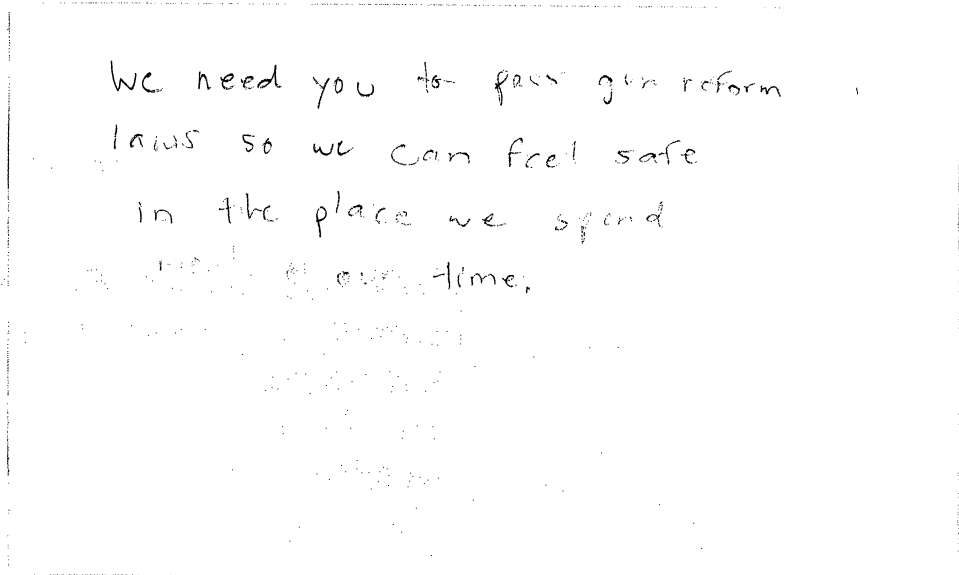 We need you to pass gun reform
laws so we can feel safe
in the place we spend
most of our time.